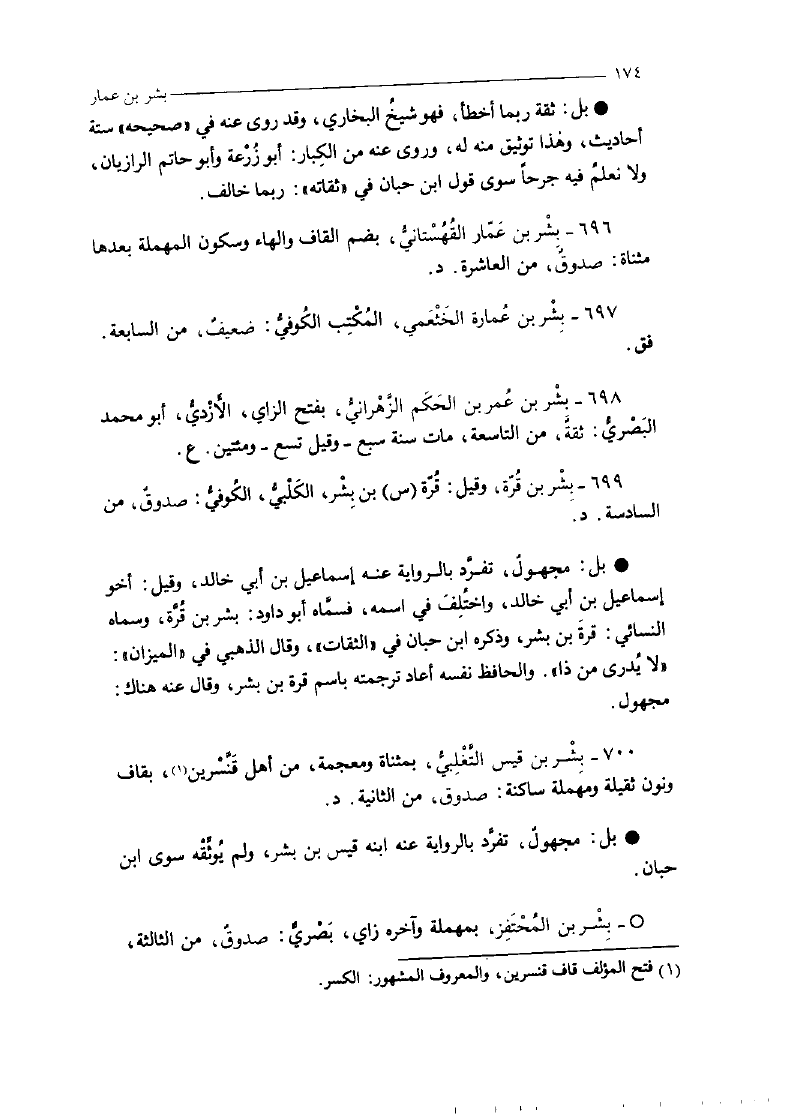 ١٧٤
بشر بن عمار
● بل: ثقة ربما أخطأ، فهو شيخُ البخاري، وقد روى عنه في «صحيحه» ستة
أحاديث، وهٰذا توثيق منه له، وروى عنه من الكِبار: أبو زُرْعة وأبو حاتم الرازيان،
ولا نعلمُ فيه جرحاً سوى قول ابن حبان في «ثقاته»: ربما خالف.
٦٩٦ ـ بِشْر بن عَمّار القُهُسْتانيُّ، بضم القاف والهاء وسكون المهملة بعدها
مثناة: صدوقٌ، من العاشرة. د.
٦٩٧ ـ بِشْر بن عُمارة الخَثْعَمي، المُكْتِب الكُوفيُّ: ضعيفٌ، من السابعة.
فق.
٦٩٨ ـ بِشْر بن عُمر بن الحَكَم الزَّهْرانيُّ، بفتح الزاي، الأَزْديُّ، أبو محمد
البَصْريُّ: ثقةٌ، من التاسعة، مات سنة سبع ـ وقيل تسع ـ ومئتين. ع.
٦٩٩ ـ بِشْر بن قُرّة، وقيل: قُرّة (س) بن بِشْر، الكَلْبيُّ، الكُوفيُّ: صدوقٌ، من
السادسة. د.
● بل: مجهـولٌ، تفـرَّد بالـرواية عنـه إسماعيل بن أبي خالد، وقيل: أخو
إسماعيل بن أبي خالد، واختُلِفَ في اسمه، فسمَّاه أبو داود: بشر بن قُرَّة، وسماه
النسائي: قرةَ بن بشر، وذكره ابن حبان في «الثقات»، وقال الذهبي في «الميزان»:
«لا يُدرى من ذا». والحافظ نفسه أعاد ترجمته باسم قرة بن بشر، وقال عنه هناك:
مجهول.
٧٠٠ ـ بِشْـر بن قيس التَّغْلِبيُّ، بمثناة ومعجمة، من أهل قَنَّسْرين(١)، بقاف
ونون ثقيلة ومهملة ساكنة: صدوق، من الثانية. د.
● بل: مجهولٌ، تفرَّد بالرواية عنه ابنه قيس بن بشر، ولم يُوثِّقْه سوى ابن
حبان.
○ ـ بِشْـر بن المُحْتَفِز، بمهملة وآخره زاي، بَصْريٌّ: صدوقٌ، من الثالثة،
(١) فتح المؤلف قاف قنسرين، والمعروف المشهور: الكسر.